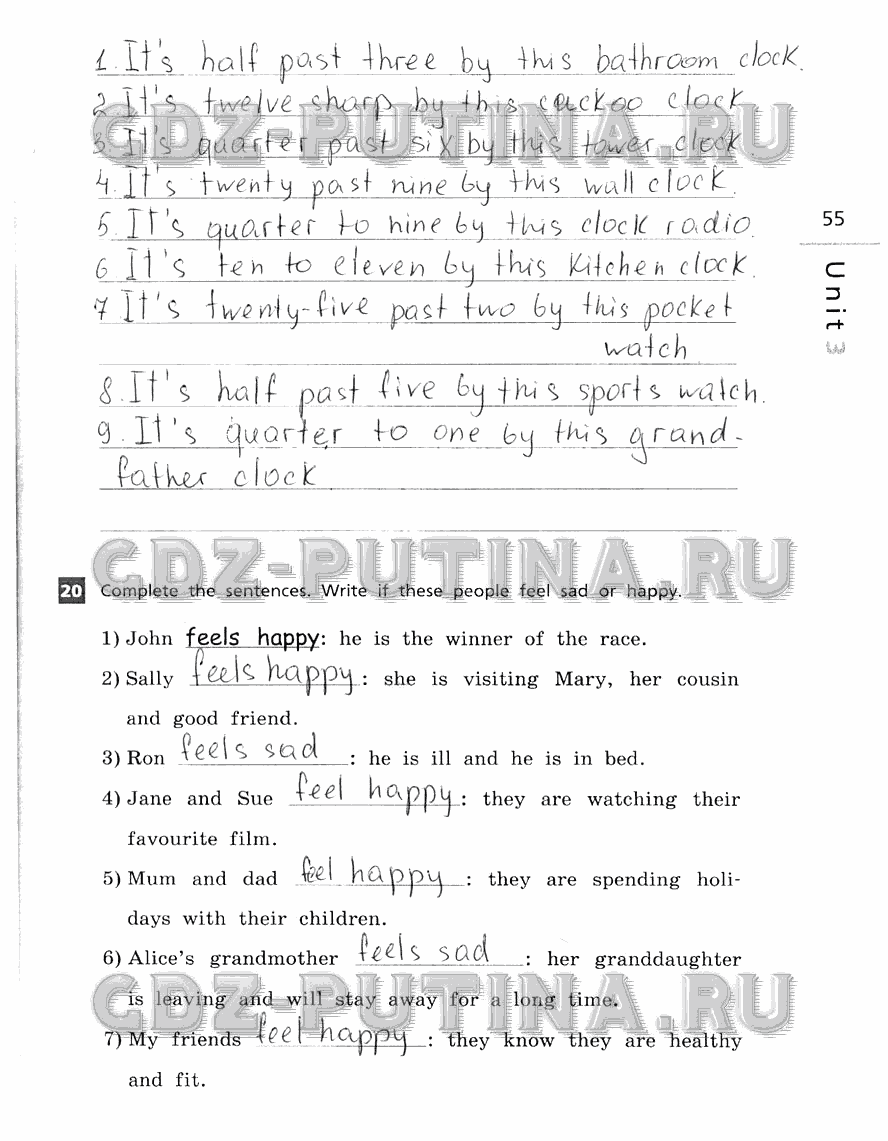 1. It's half past three by this bathroom clock.
2. It's twelve sharp by this cuckoo clock
GDZ-PUTINA.RU
3. It's quarter past six by this tower clock.
4. It's twenty past nine by this wall clock.
5. It's quarter to nine by this clock radio.
55
6. It's ten to eleven by this kitchen clock.
Unit 3
7 It's twenty-five past two by this pocket
watch
8. It's half past five by this sports watch.
9. It's quarter to one by this grand-
father clock
GDZ-PUTINA.RU
20 Complete the sentences. Write if these people feel sad or happy.
1) John feels happy: he is the winner of the race.
2) Sally feels happy : she is visiting Mary, her cousin
and good friend.
3) Ron feels sad : he is ill and he is in bed.
4) Jane and Sue feel happy : they are watching their
favourite film.
5) Mum and dad feel happy : they are spending holi-
days with their children.
6) Alice's grandmother feels sad : her granddaughter
GDZ-PUTINA.RU
is leaving and will stay away for a long time.
7) My friends feel happy : they know they are healthy
and fit.